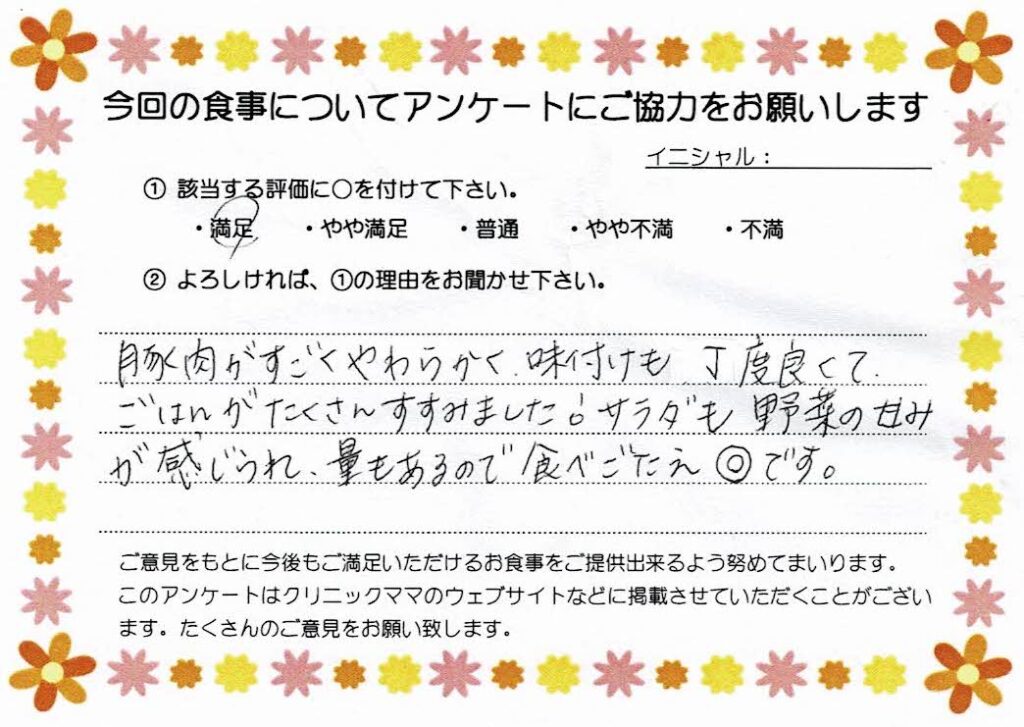 今回の食事についてアンケートにご協力をお願いします
イニシャル：
① 該当する評価に○を付けて下さい。
・満足 ・やや満足 ・普通 ・やや不満 ・不満
② よろしければ、①の理由をお聞かせ下さい。
豚肉がすごくやわらかく、味付けも丁度良くて、
ごはんがたくさんすすみました。サラダも野菜の甘み
が感じられ、量もあるので食べごたえ◎です。
ご意見をもとに今後もご満足いただけるお食事をご提供出来るよう努めてまいります。
このアンケートはクリニックママのウェブサイトなどに掲載させていただくことがござい
ます。たくさんのご意見をお願い致します。